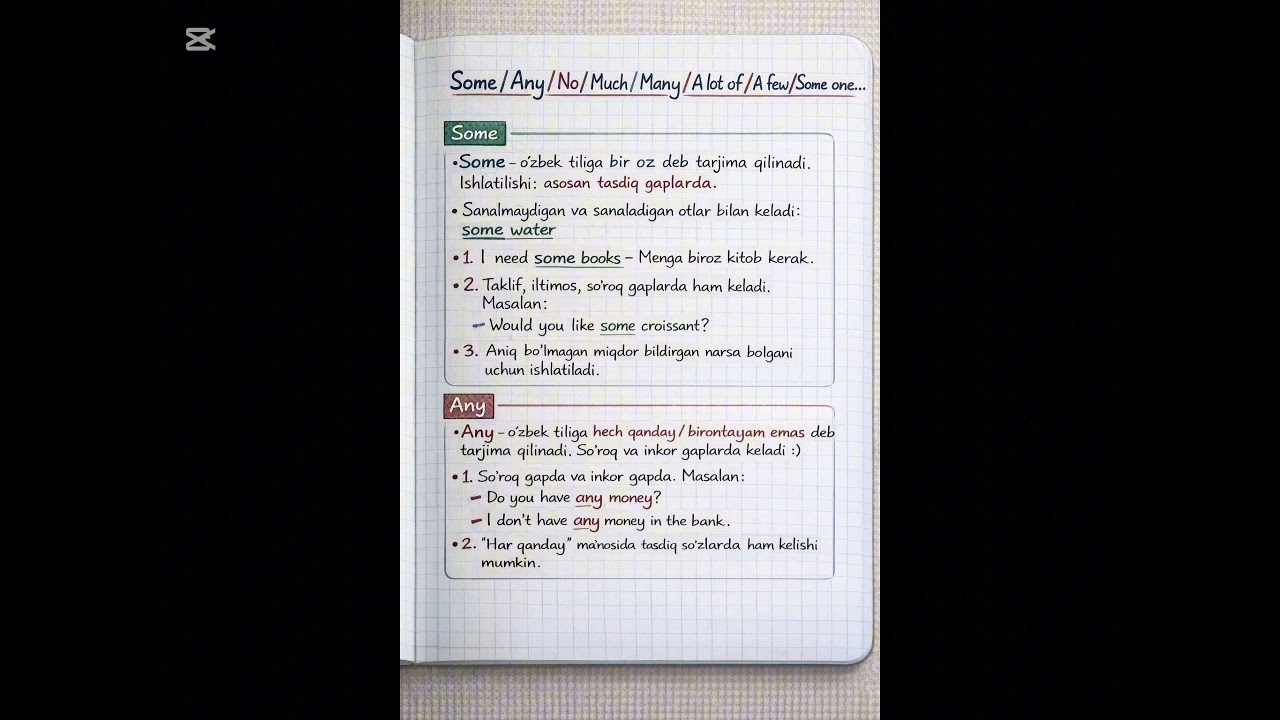 Some/Any/No/Much/Many/A lot of/A few/Some one...
Some
•Some – o'zbek tiliga bir oz deb tarjima qilinadi.
Ishlatilishi: asosan tasdiq gaplarda.
• Sanalmaydigan va sanaladigan otlar bilan keladi:
some water
•1. I need some books – Menga biroz kitob kerak.
•2. Taklif, iltimos, so'roq gaplarda ham keladi.
Masalan:
– Would you like some croissant?
•3. Aniq bo'lmagan miqdor bildirgan narsa bolgani
uchun ishlatiladi.
Any
•Any – o'zbek tiliga hech qanday/birontayam emas deb
tarjima qilinadi. So'roq va inkor gaplarda keladi :)
•1. So'roq gapda va inkor gapda. Masalan:
– Do you have any money?
– I don't have any money in the bank.
•2. "Har qanday" ma'nosida tasdiq so'zlarda ham kelishi
mumkin.